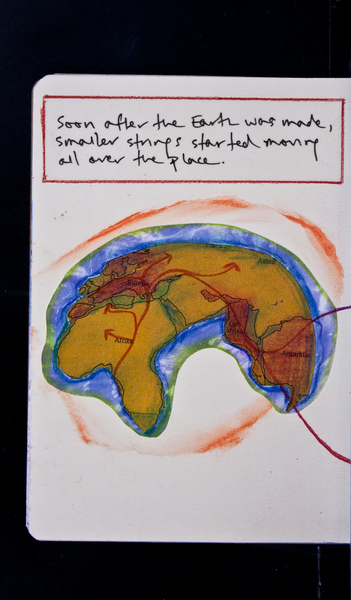 Soon after the Earth was made,
smaller strings started moving
all over the place.
Europe
Asia
Africa
Australia